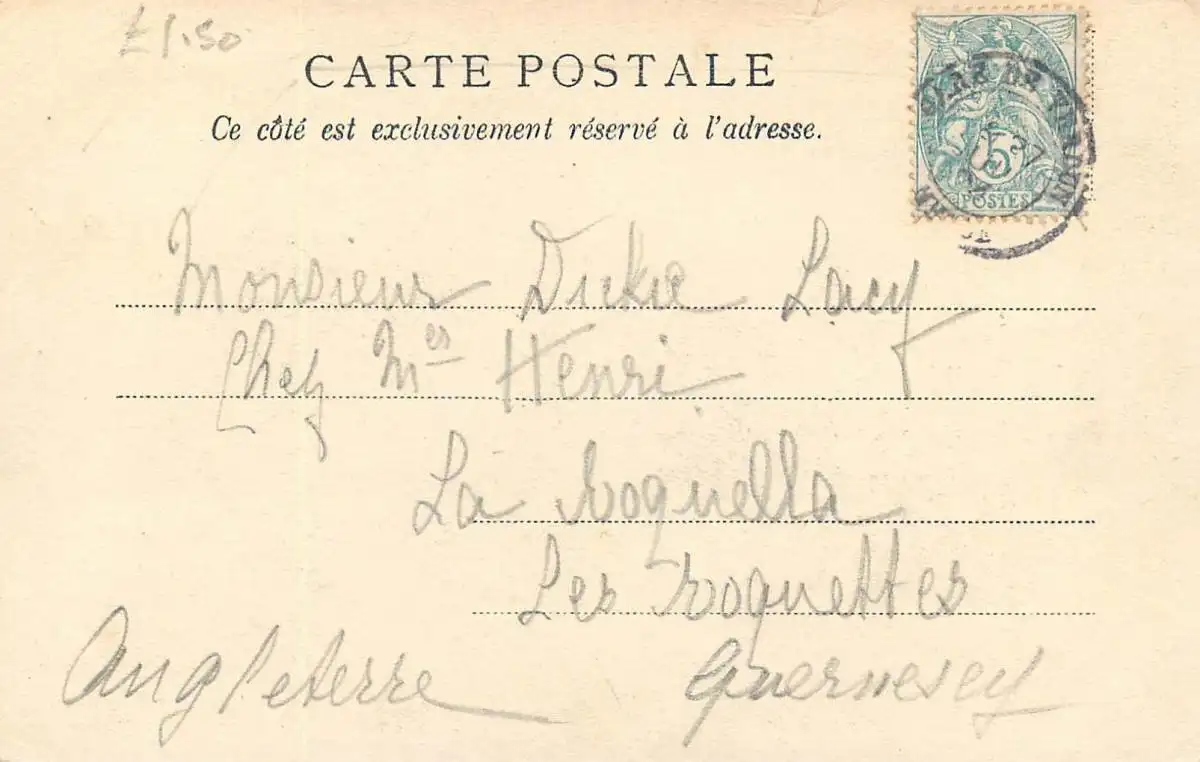 £1.50
CARTE POSTALE
Ce côté est exclusivement réservé à l'adresse.
5
POSTES
Monsieur Dickie Lacy
Chez Mes Henri
La Roquella
Les Roquettes
Angleterre Guernesey